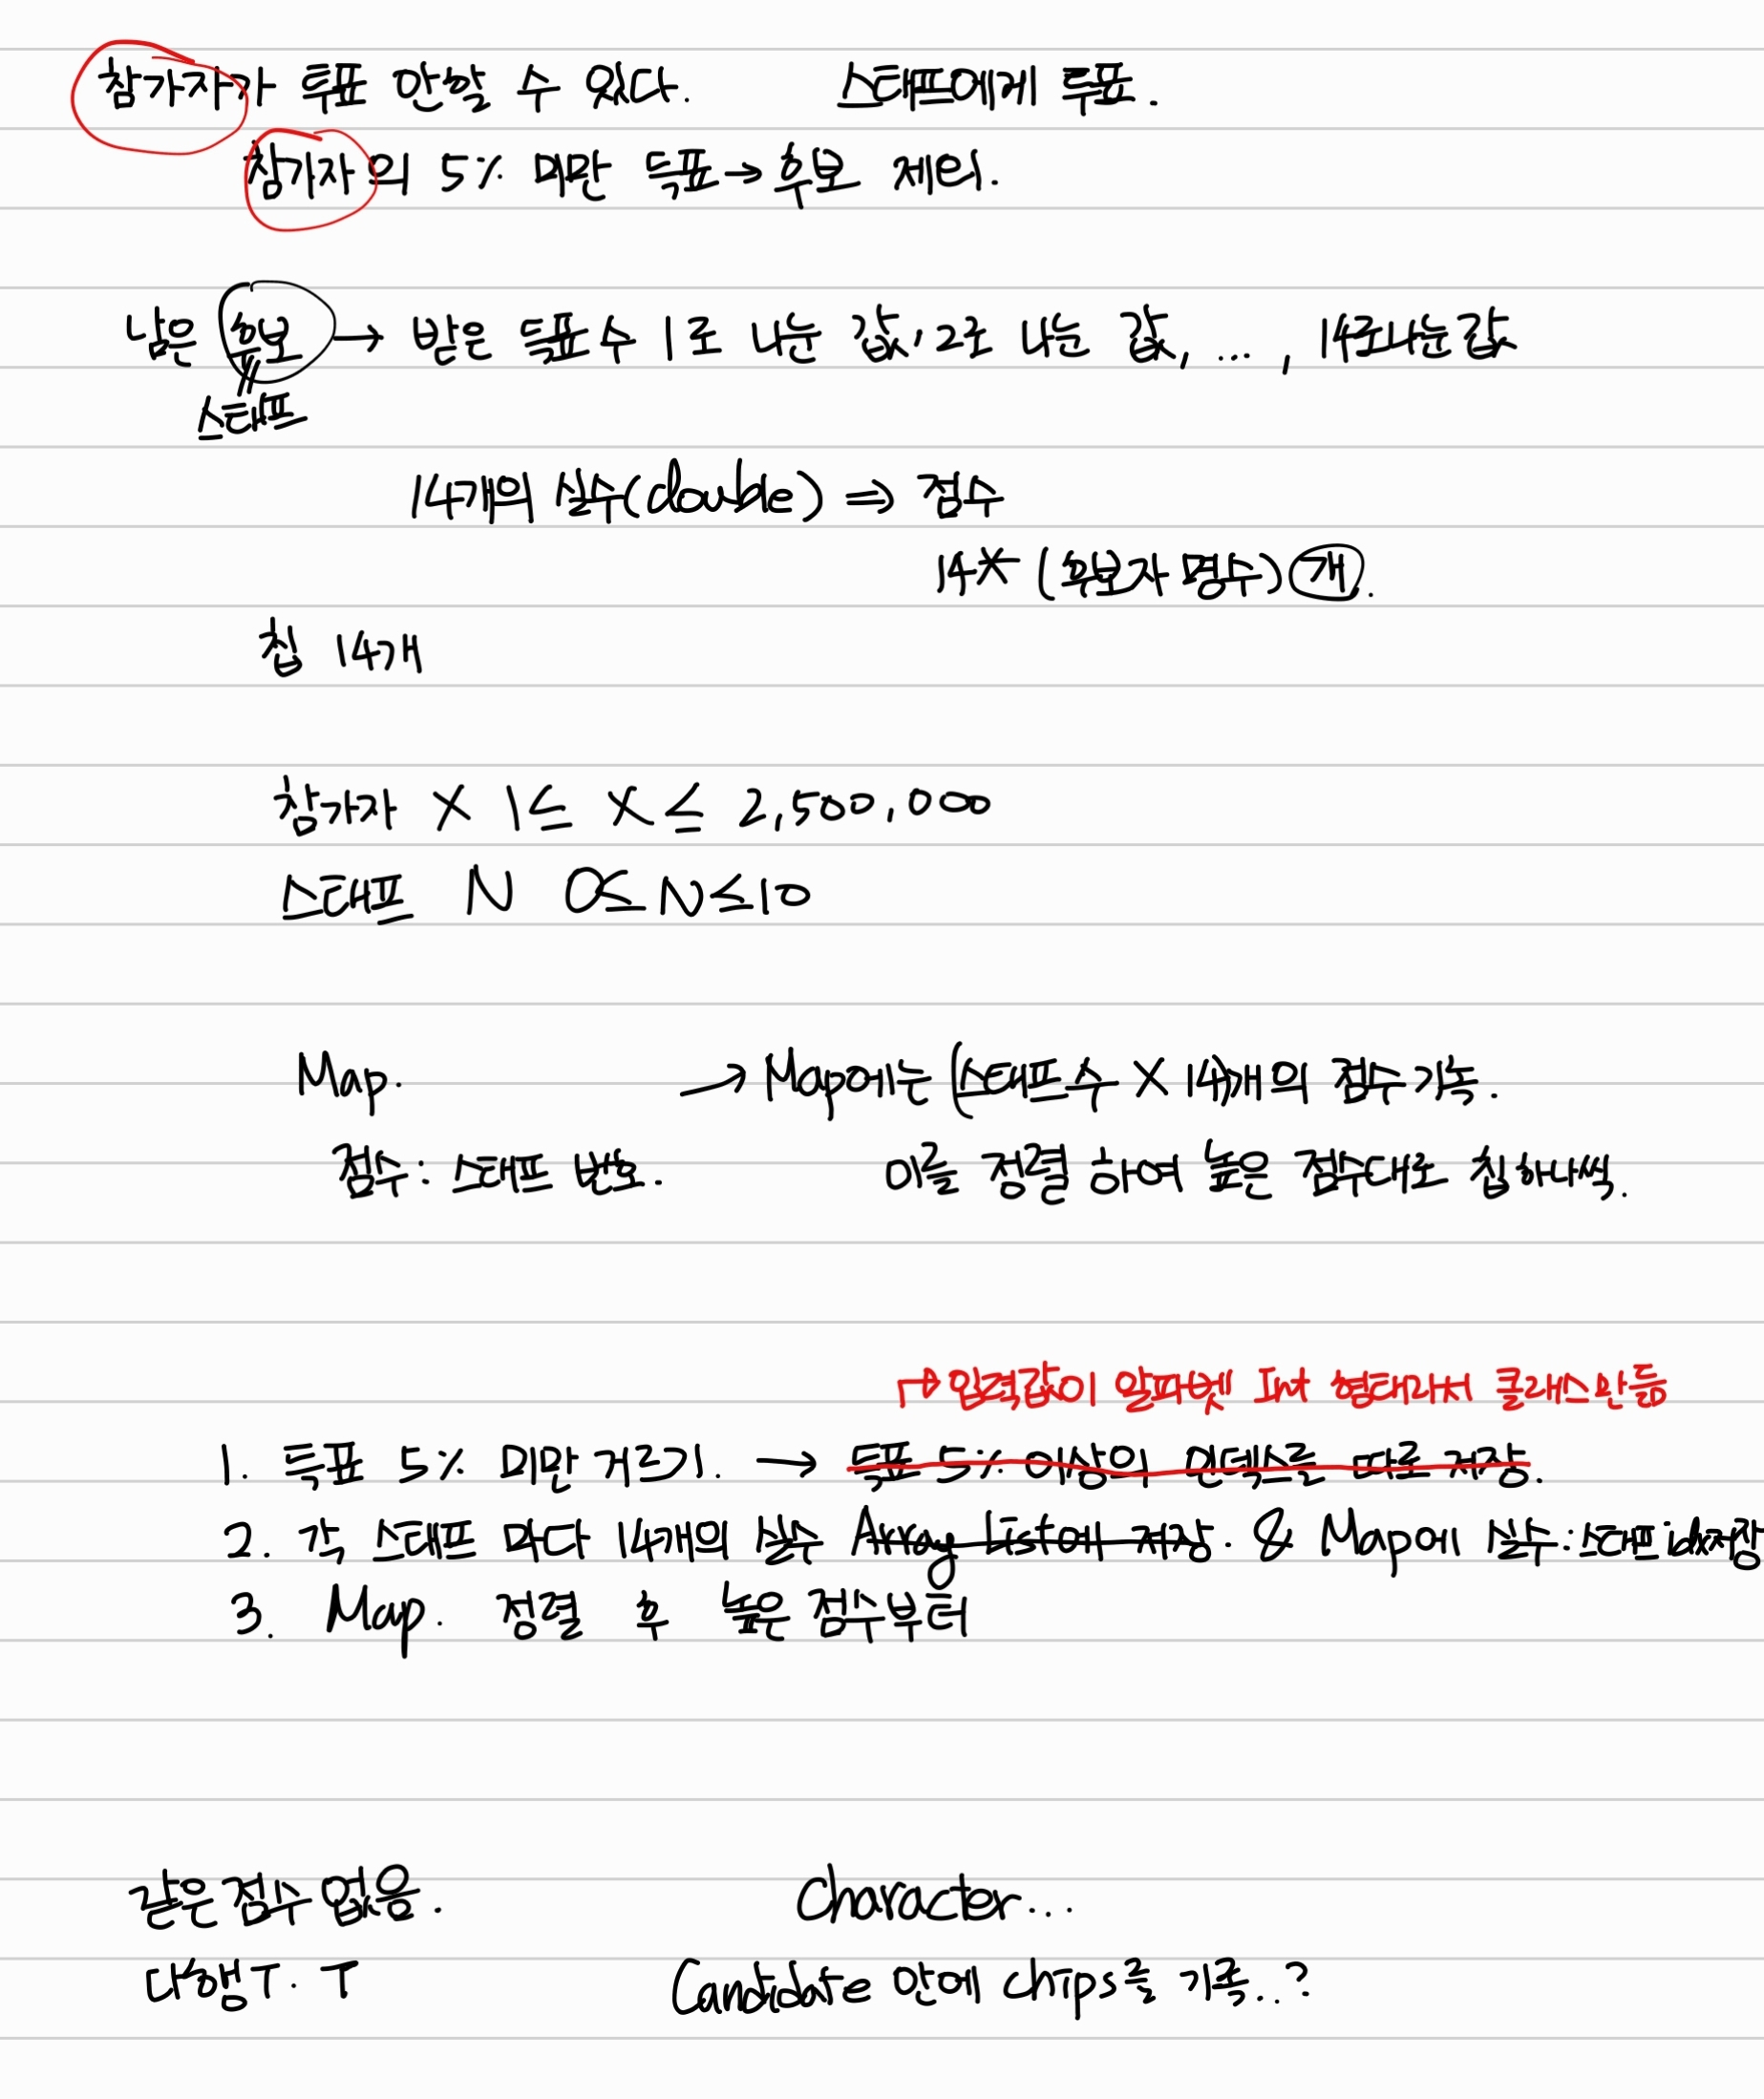 참가자가 투표 안할 수 있다. 스태프에게 투표.
참가자의 5% 미만 득표→후보 제외.
남은 후보 → 받은 득표수 1로 나눈 값, 2로 나눈 값, ..., 14로나눈값
스태프
14개의 실수(double) ⇒ 점수
14* (후보자 명수)개.
칩 14개
참가자 X 1≤ X ≤ 2,500,000
스태프 N 0≤N≤10
Map. → Map에는 (스태프수 X 14)개의 점수 기록.
점수: 스태프 번호. 이를 정렬 하여 높은 점수대로 칩 하나씩.
↱ 입력값이 알파벳 Int 형태라서 클래스만듦
1. 득표 5% 미만 거르기. → 득표 5% 이상의 인덱스를 따로 저장.
2. 각 스태프 마다 14개의 실수 Array List에 저장. & Map에 실수:스태프id저장
3. Map. 정렬 후 높은 점수부터
같은점수 없음. Character...
나형범T. T Candidate 안에 chips를 기록..?